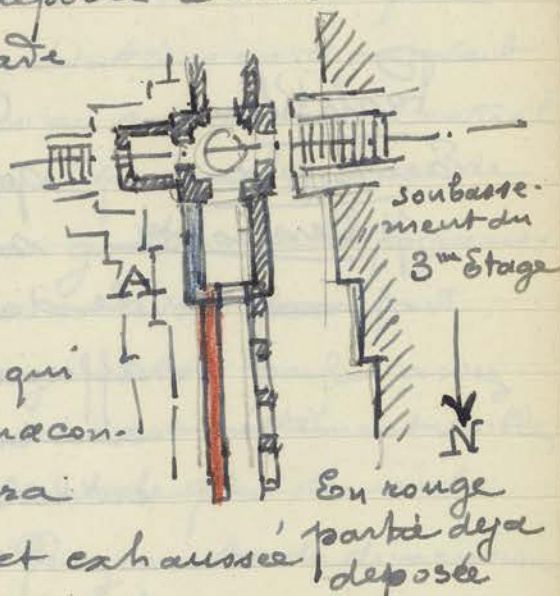 ade
A
soubasse-
ment du
3me Étage
qui
maçon-
ra
et exhaussée
N
En rouge
partie deja
deposée